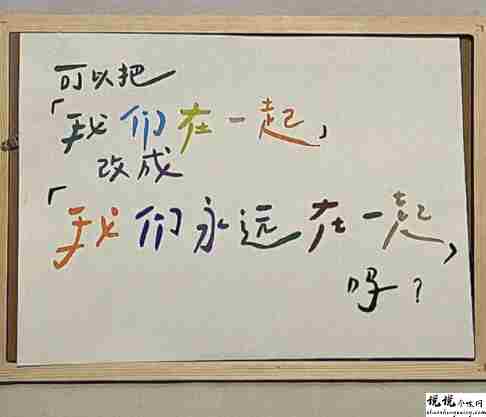 可以把
「我们在一起」
改成
「我们永远在一起」
吗?
说说个性网